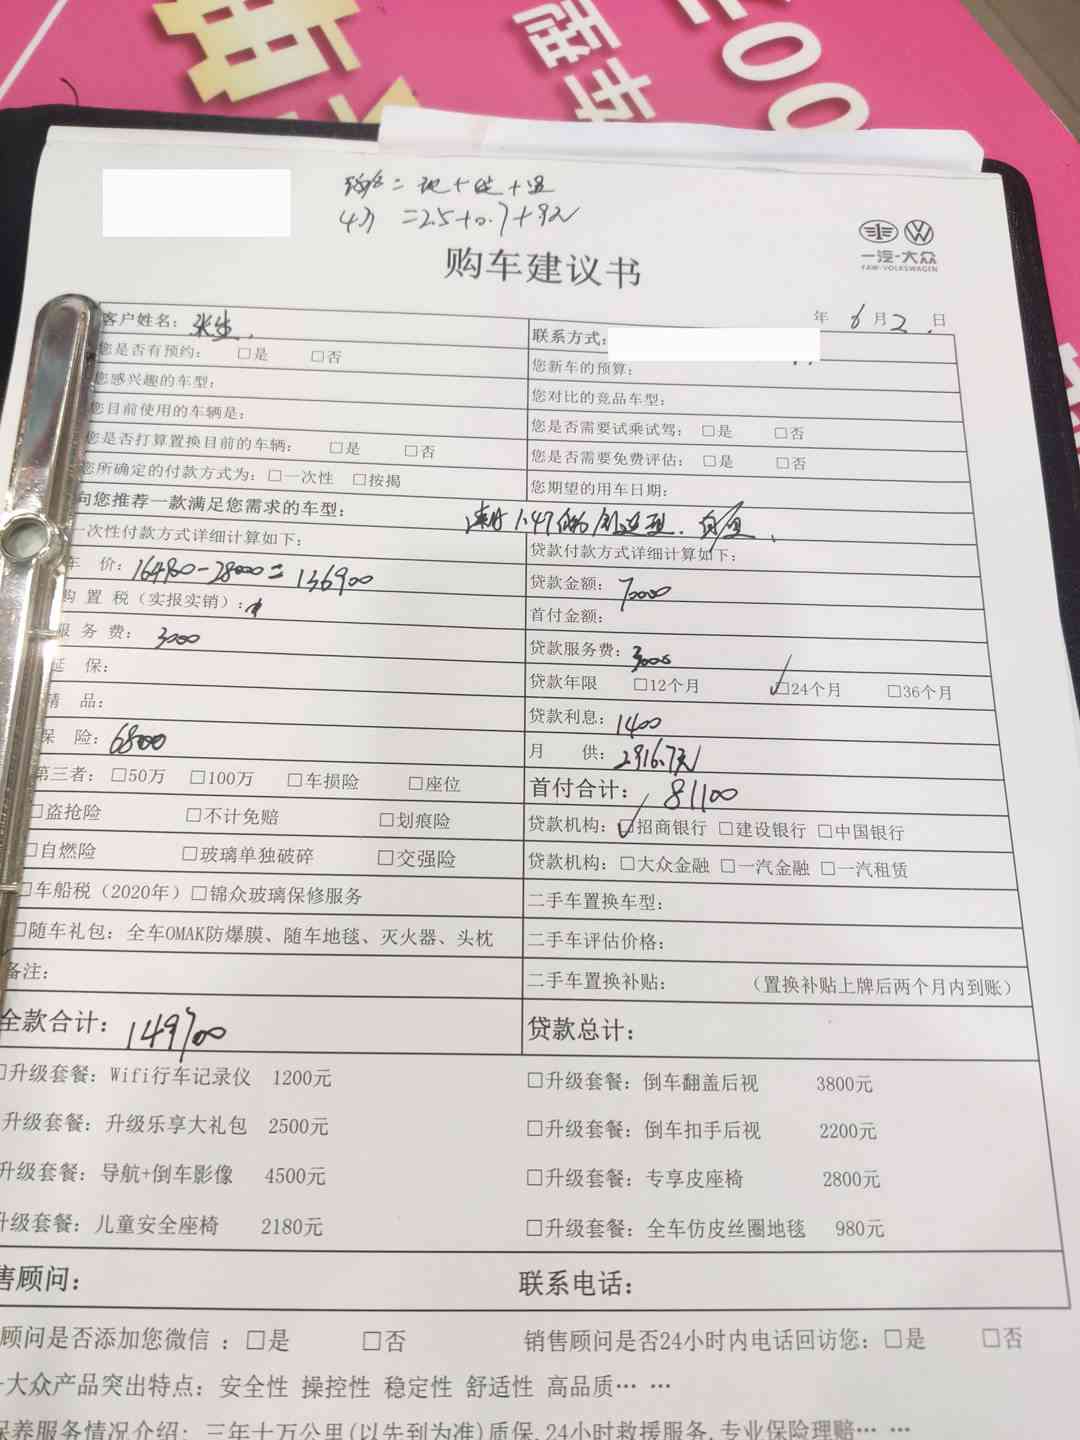 到
车
00
= 地 + + 温
4万 =2.5+0.7+
购车建议书
一汽-大众
FAW-VOLKSWAGEN
年 6月2.日
客户姓名: 张生.
联系方式:
您是否有预约: □是 □否
您新车的预算:
您感兴趣的车型:
您对比的竞品车型:
您目前使用的车辆是:
您是否需要试乘试驾: □是 □否
您是否打算置换目前的车辆: □是 □否
您是否需要免费评估: □是 □否
您所确定的付款方式为: □一次性 □按揭
您期望的用车日期:
向您推荐一款满足您需求的车型: 速腾 1.4T 舒适型. 白色.
一次性付款方式详细计算如下:
贷款付款方式详细计算如下:
车 价: 164900-28000=136900
贷款金额: 70000
购 置 税(实报实销):
首付金额:
服 务 费: 3000
贷款服务费: 3000
延 保:
贷款年限 □12个月 ☑24个月 □36个月
精 品:
贷款利息: 1400
保 险: 6800
月 供: 2916.7元
第三者: □50万 □100万 □车损险 □座位
首付合计: 81100
□盗抢险 □不计免赔 □划痕险
贷款机构: ☑招商银行 □建设银行 □中国银行
□自燃险 □玻璃单独破碎 □交强险
贷款机构: □大众金融 □一汽金融 □一汽租赁
□车船税(2020年) □锦众玻璃保修服务
二手车置换车型:
□随车礼包: 全车OMAK防爆膜、随车地毯、灭火器、头枕
二手车评估价格:
备注:
二手车置换补贴: (置换补贴上牌后两个月内到账)
全款合计: 149700
贷款总计:
□升级套餐: Wifi行车记录仪 1200元
□升级套餐: 倒车翻盖后视 3800元
升级套餐: 升级乐享大礼包 2500元
□升级套餐: 倒车扣手后视 2200元
升级套餐: 导航+倒车影像 4500元
□升级套餐: 专享皮座椅 2800元
升级套餐: 儿童安全座椅 2180元
□升级套餐: 全车仿皮丝圈地毯 980元
售顾问:
联系电话:
顾问是否添加您微信 : □是 □否
销售顾问是否24小时内电话回访您: □是 □否
-大众产品突出特点: 安全性 操控性 稳定性 舒适性 高品质… …
保养服务情况介绍: 三年十万公里(以先到为准)质保,24小时救援服务,专业保险理赔… …